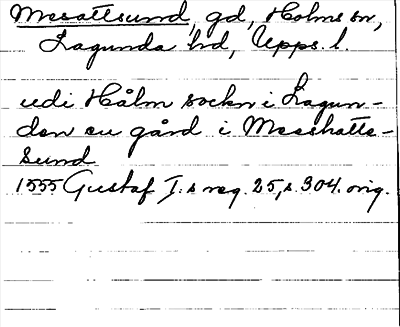 Mesattsund, gd, Holms sn,
Lagunda hd, Upps. l.
udi Hålm sockn i Lagun-
den en gård i Messhatts-
sund
1555 Gustaf I:s reg. 25, s. 304. orig.